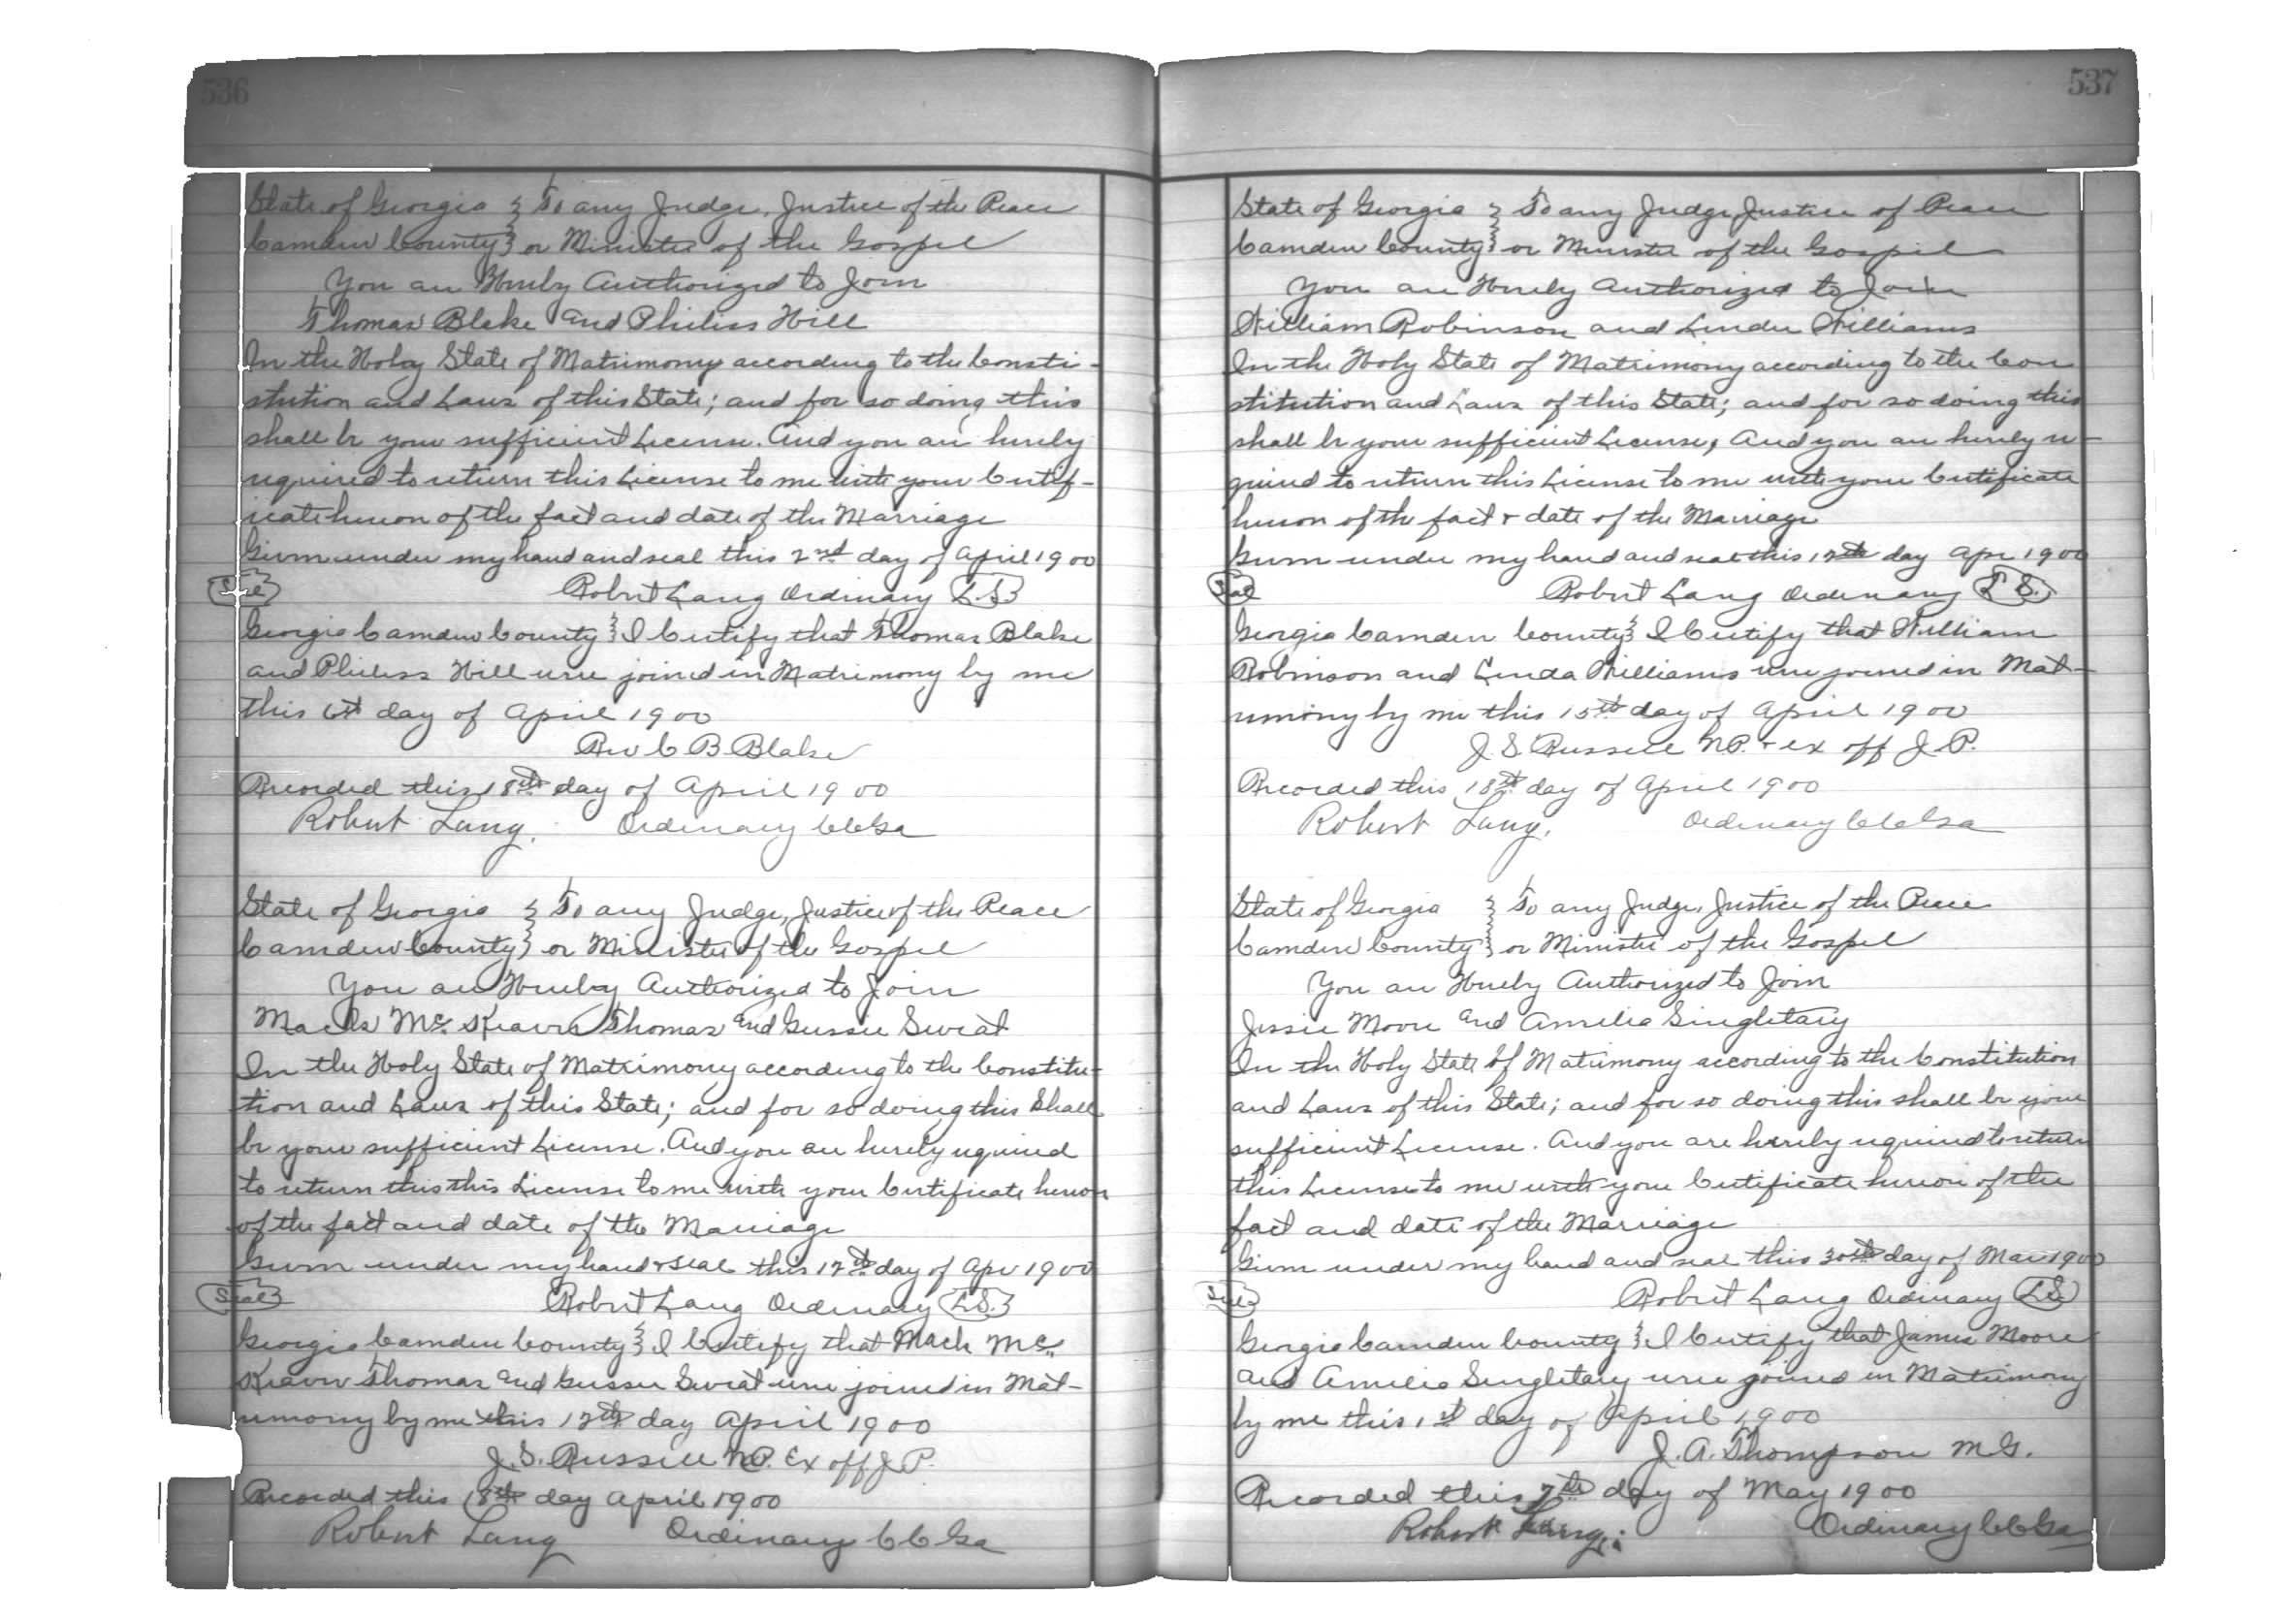 536
State of Georgia } To any Judge, Justice of the Peace
Camden County } or Minister of the Gospel
You are Hereby Authorized to Join
Thomas Blake and Philiss Hill
In the Holy State of Matrimony according to the Consti-
stution and Laws of this State; and for so doing this
shall be your sufficient License. And you are hereby
required to return this License to me with your Certif-
icate hereon of the fact and date of the Marriage
Given under my hand and seal this 2nd day of April 1900
Seal Robert Lang Ordinary L.S.
Georgia Camden County } I Certify that Thomas Blake
and Philiss Hill were joined in Matrimony by me
this 6th day of April 1900
Rev C B Blake
Recorded this 18th day of April 1900
Robert Lang. Ordinary CCGa
State of Georgia } To any Judge, Justice of the Peace
Camden County } or Minister of the Gospel
You are Hereby Authorized to Join
Mc. Thomas and Gussie Sweat
In the Holy State of Matrimony according to the Constitu-
tion and Laws of this State; and for so doing this Shall
be your sufficient License. And you are hereby required
to return this this License to me with your Certificate hereon
of the fact and date of the Marriage
Given under my hand & seal this 12th day of Apr 1900
Seal Robert Lang Ordinary L.S.
Georgia Camden County } I Certify that Mack Mc.
Thomas and Gussie Sweat were joined in Mat-
rimony by me this 12th day April 1900
J. S. Russell N.P. Ex off J.P.
Recorded this 18th day April 1900
Robert Lang Ordinary CCGa
537
State of Georgia } To any Judge, Justice of Peace
Camden County } or Minister of the Gospel
You are Hereby Authorized to Join
William Robinson and Linda Williams
In the Holy State of Matrimony according to the Con
stitution and Laws of this State; and for so doing this
shall be your sufficient License, And you are hereby re-
quired to return this License to me with your Certificate
hereon of the fact & date of the Marriage
Given under my hand and seal this 12th day Apr 1900
Seal Robert Lang Ordinary L.S.
Georgia Camden County } I Certify that William
Robinson and Linda Williams were joined in Mat-
rimony by me this 15th day of April 1900
J. S. Russell N.P. & ex off J.P.
Recorded this 18th day of April 1900
Robert Lang. Ordinary CCGa
State of Georgia } To any Judge, Justice of the Peace
Camden County } or Minister of the Gospel
You are Hereby Authorized to Join
Jessie Moore and Amelia Singletary
In the Holy State of Matrimony according to the Constitution
and Laws of this State; and for so doing this shall be your
sufficient License. And you are hereby required to return
this License to me with your Certificate hereon of the
fact and date of the Marriage
Given under my hand and seal this 30th day of Mar 1900
Seal Robert Lang Ordinary L.S.
Georgia Camden County } I Certify that James Moore
and Amelia Singletary were joined in Matrimony
by me this 1st day of April 1900
J. A. Thompson M.G.
Recorded this 7th day of May 1900
Robert Lang. Ordinary CCGa